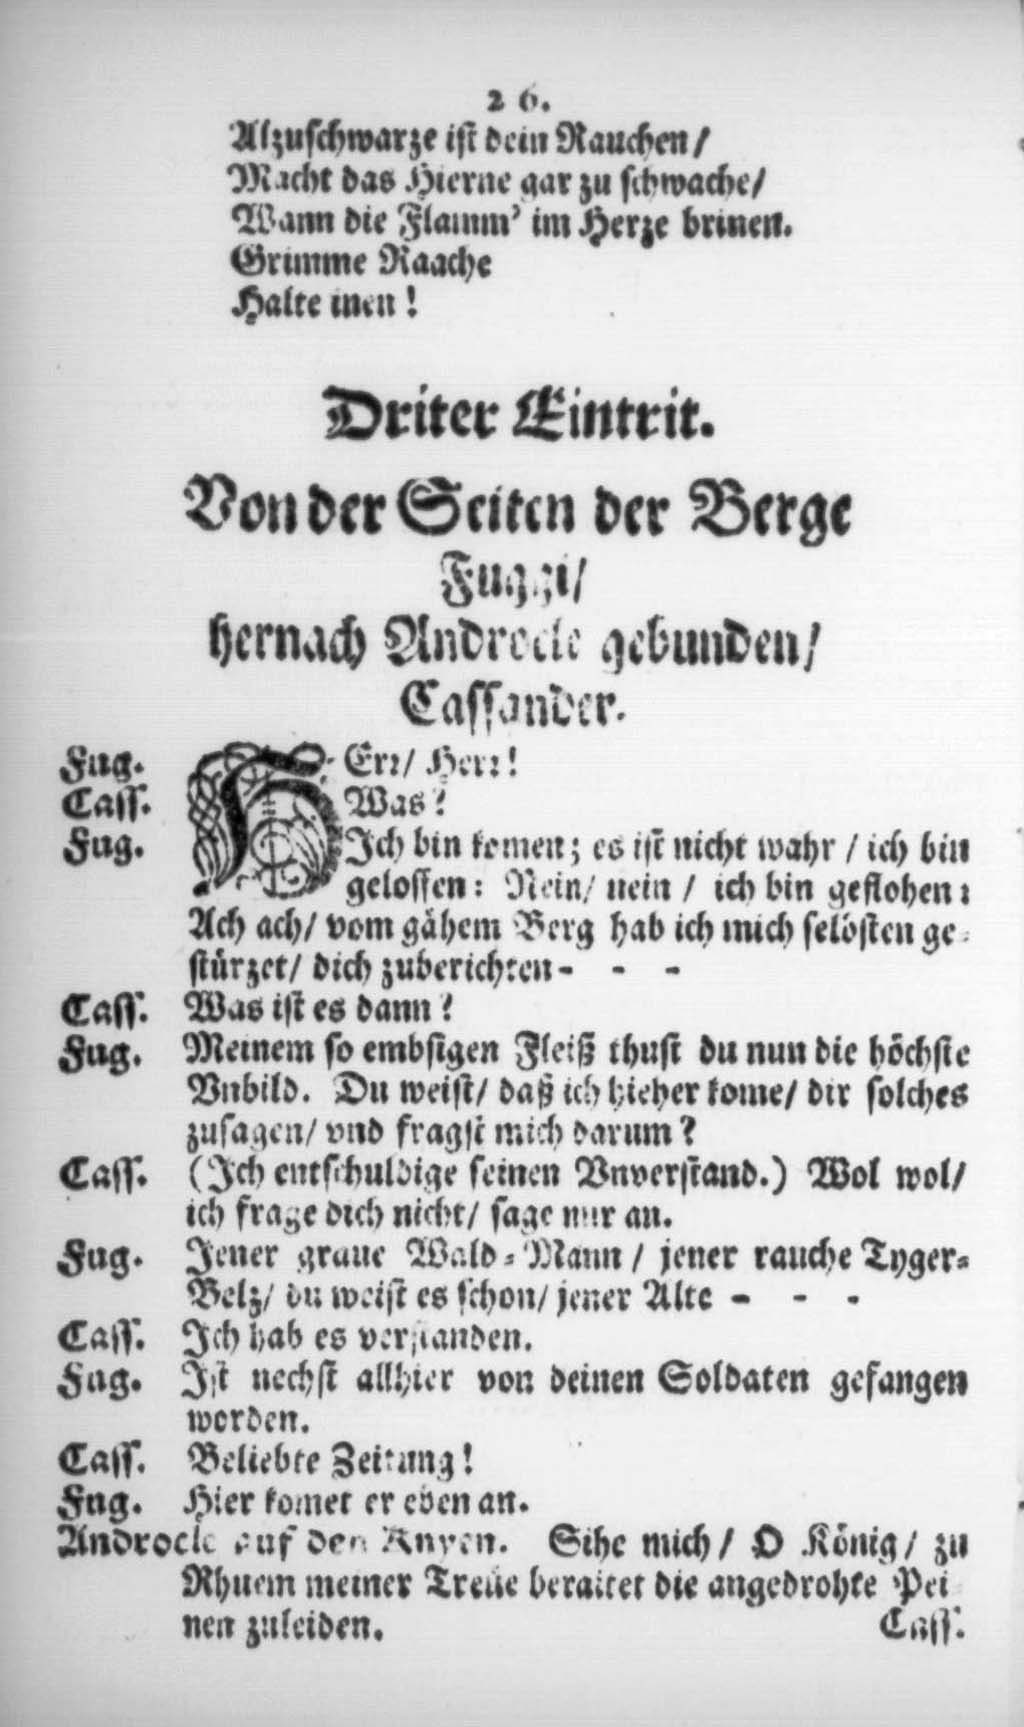 26.
Alzuschwarze ist dein Rauchen/
Macht das Hierne gar zu schwache/
Wann die Flamm' im Herze brinen.
Grimme Raache
Halte inen!
Driter Eintrit.
Von der Seiten der Berge
Fuggi/
hernach Androcle gebunden/
Cassander.
Fug. HErr/ Herr!
Cass. Was?
Fug. Ich bin komen; es ist nicht wahr / ich bin
geloffen: Nein/ nein / ich bin geflohen:
Ach ach/ vom gähem Berg hab ich mich selbsten ge-
stürzet/ dich zuberichten- - -
Cass. Was ist es dann?
Fug. Meinem so embsigen Fleiß thust du nun die höchste
Vnbild. Du weist/ daß ich hieher kome/ dir solches
zusagen/ vnd fragst mich darum?
Cass. (Ich entschuldige seinen Vnverstand.) Wol wol/
ich frage dich nicht/ sage nur an.
Fug. Jener graue Wald-Mann / jener rauche Tyger-
Belz/ du weist es schon/ jener Alte - - -
Cass. Ich hab es verstanden.
Fug. Ist nechst allhier von deinen Soldaten gefangen
worden.
Cass. Beliebte Zeitung!
Fug. Hier komet er eben an.
Androcle auf den Knyen. Sihe mich/ O König/ zu
Rhuem meiner Treue beraitet die angedrohte Pei
nen zuleiden. Cass.